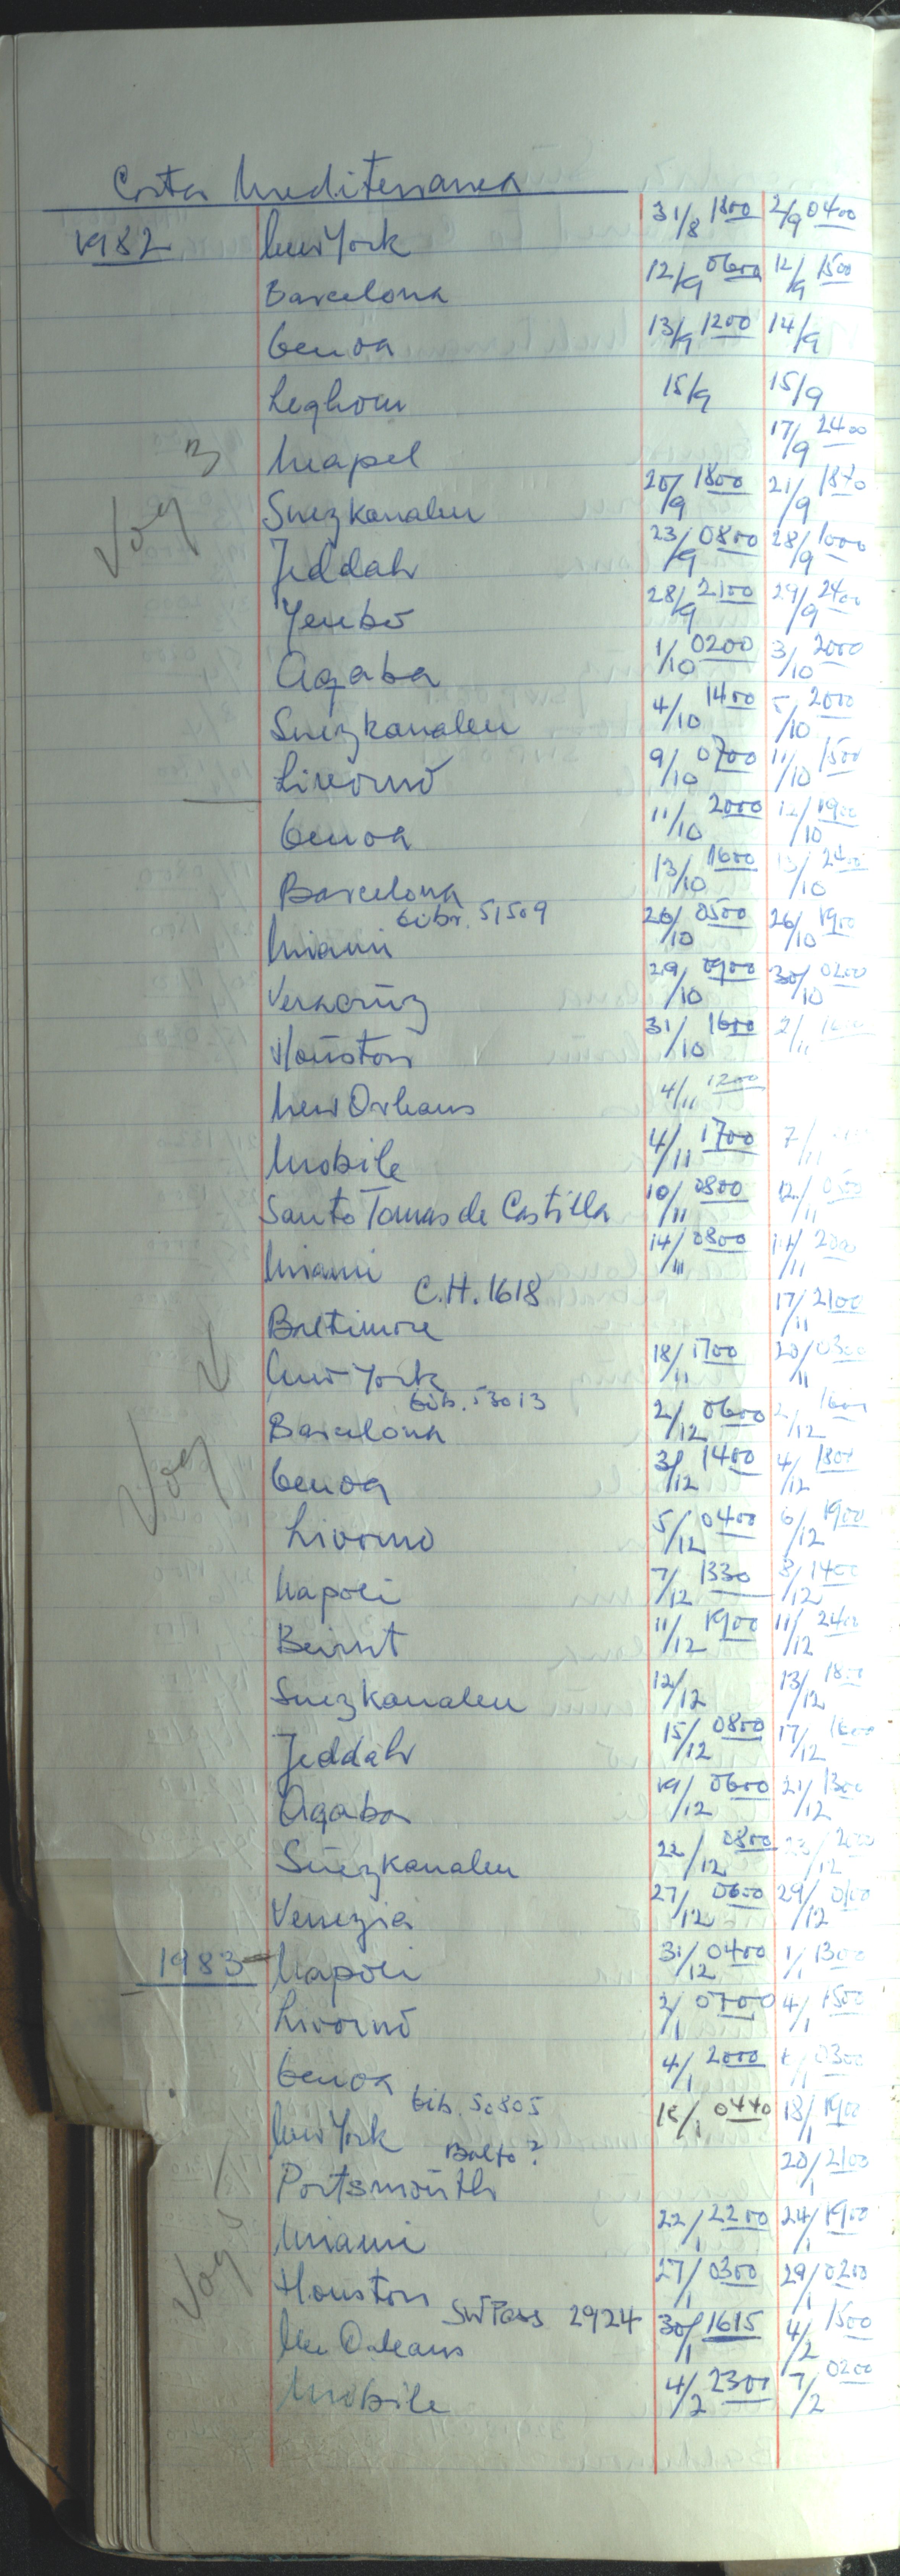 Costa Mediterranea
1982 New York 31/8 1800 2/9 0400
Barcelona 12/9 0600 12/9 1500
Genoa 13/9 1200 14/9
Leghorn 15/9 15/9
Neapel 17/9 2400
Voy 3
Suezkanalen 20/9 1800 21/9 1870
Jeddah 23/9 0800 28/9 1000
Yenbo 28/9 2100 29/9 2400
Aqaba 1/10 0200 3/10 2000
Suezkanalen 4/10 1400 5/10 2000
Livorno 9/10 0700 11/10 1500
Genoa 11/10 2000 12/10 1900
Barcelona 13/10 1600 13/10 2400
Gibr. 51509
Miami 26/10 0500 26/10 1900
Veracruz 29/10 0900 30/10 0200
Houston 31/10 1600 2/11
New Orleans 4/11 1200
Mobile 4/11 1700 7/11
Santo Tomas de Castilla 10/11 0800 12/11 0500
Miami 14/11 0800 14/11 2000
C.H. 1618
Baltimore 17/11 2100
New York 18/11 1700 20/11 0300
Gib. 53013
Barcelona 2/12 0600 2/12 1600
Voy
Genoa 3/12 1400 4/12 1800
Livorno 5/12 0400 6/12 1900
Napoli 7/12 1330 8/12 1400
Beirut 11/12 1900 11/12 2400
Suezkanalen 12/12 13/12 1800
Jeddah 15/12 0800 17/12 1600
Aqaba 19/12 0600 21/12 1300
Suezkanalen 22/12 0800 23/12 2000
Venezia 27/12 0600 29/12 0100
1983 Napoli 31/12 0400 1/1 1300
Livorno 3/1 0700 4/1 1500
Genoa 4/1 2000 6/1 0300
Gib. 50805
New York 16/1 0440 18/1 1900
Balto?
Portsmouth 20/1 2100
Miami 22/1 2200 24/1 1900
Voy 5
Houston 27/1 0300 29/1 0200
SW Pass 2924
New Orleans 30/1 1615 4/2 1500
Mobile 4/2 2300 7/2 0200